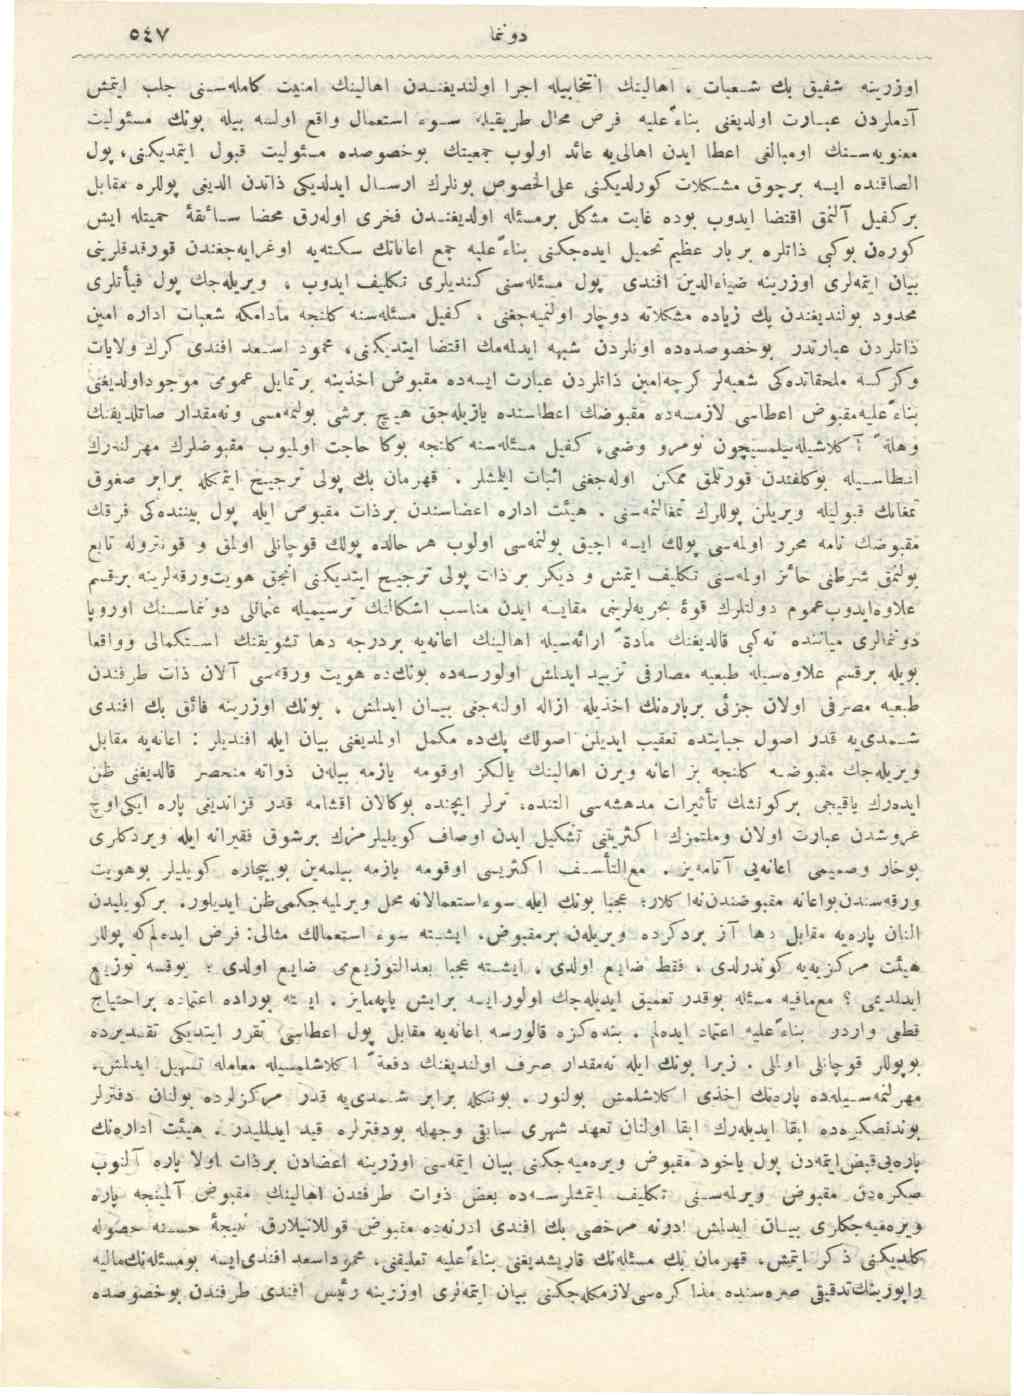 دونما ٥٤٧
اوزرینه شفیق بك شعبات ، اهالینك انتخابیله اجرا اولندیغندن اهالینك امنیت کامله سنی جلب ایتمش
آدملردن عبارت اولدیغنی بناءً علیه فرض محال طریقیله سوء استعمال واقع اولسه بیله بونك مسئولیت
معنویه سنك اومبالغی اعطا ایدن اهالی یه عائد اولوب جمعیتك بوخصوصده مسئولیت قبول ایتمدیکنی، پول
الصاقنده ایسه برچوق مشکلات کورلدیکنی علی الخصوص بونلرك ارسال ایدلدیکی ذاتدن الدینی پوللره مقابل
برکفیل آلنمق اقتضا ایدوب بوده غایت مشکل برمسئله اولدیغندن فخری اوله رق محضا سائقهٔ حمیتله ایش
کوره ن بوکبی ذاتلره بر بار عظیم تحمیل ایده جکنی بناءً علیه جمع اعاناتك سکته یه اوغرایه جغندن قورقدقلرینی
بیان ایتمه لری اوزرینه ضیاءالدین افندی پول مسئله سنی کندیلری تکلیف ایدوب ، ویریله جك پول فیأتلری
محدود بولندیغندن پك زیاده مشکلاته دوچار اولنمیه جغنی ، کفیل مسئله سنه کلنجه مادامکه شعبات اداره امین
ذاتلردن عبارتدر بوخصوصده ده اونلردن شبهه ایدلمه مك اقتضا ایتدیکنی، محمود اسعد افندی کرك ولایات
وکرکسه ملحقاتده کی شعبه لر کرچه امین ذاتلردن عبارت ایسه ده مقبوض اخذینه برتمایل عمومی موجوداولدیغنی
بناءً علیه مقبوض اعطاسی لازمسه ده مقبوضك اعطاسنده یازیله جق هیچ برشی بولنمه مسی ونه مقدار صاتلدیغنك
وهلةً آکلاشیله بیلمسیچون نومرو وضعی، کفیل مسئله سنه کلنجه بوکا حاجت اولمیوب مقبوضلرك مهرلنه رك
اعطاسیله بوکلفتدن قورتلمق ممکن اوله جغنی اثبات ایلمشلر . قهرمان بك پولی ترجیح ایتمکله برابر صغوق
تمغانك قبولیله ویریلن پوللرك تمغالنمه سنی . هیئت اداره اعضاسندن برذات مقبوض ایله پول بیننده کی فرقك
مقبوضك نامه محرر اولمه سی پولك ایسه اجیق بولنمه سی اولوب هر حالده پولك قوچانلی اولمق و قونتروله تابع
بولنمق شرطنی حائز اولمه سنی تکلیف ایتمش و دیکر بر ذات پولی ترجیح ایتدیکنی انجق هویت ورقه لرینه برقسم
علاوه ایدوب عموم دولتلرك قوهٔ بحریه لرینی مقایسه ایدن مناسب اشکالك ترسیمیله عثمانلی دونماسنك اوروپا
دونمالری میاننده نه کبی قالدیغنك مادةً ارائه سیله اهالینك اعانه یه بردرجه دها تشویقنك استکمالی وواقعا
بویله برقسم علاوه سیله طبعیه مصارفی تزیید ایدلمش اولورسه ده بونك ده هویت ورقه سی آلان ذات طرفندن
طبعیه مصرفی اولان جزئی برپاره نك اخذیله ازاله اولنه جغنی بیان ایدلمش . بونك اوزرینه فائق بك افندی
شمدی یه قدر اصول جبایتده تعقیب ایدیلن اصولك پك ده مکمل اولمدیغنی بیان ایله افندیلر : اعانه یه مقابل
ویریله جك مقبوضه کلنجه بز اعانه ویرن اهالینك یالکز اوقومه یازمه بیله ن ذواته منحصر قالدیغنی ظن
ایده رك یاقیجی برکونشك تأثیرات مدهشه سی التنده، ترلر ایچنده بوکالان اقشامه قدر قزاندینی پاره ایکی اوچ
غروشدن عبارت اولان وملتمزك اکثریتنی تشکیل ایدن اوصاف کویلیلرمزك برشوق فقیرانه ایله ویردکلری
بوخار وصمیمی اعانه یی آتامه یز . مع التأسف اکثریسی اوقومه یازمه بیلمه ین بوبیچاره کویلیلر بوهویت
ورقه سندن بواعانه مقبوضندن نه اکلار؛ عجبا بونك ایله سوءاستعمالانه محل ویرلمیه جکمی ظن ایدیلور. برکویلیدن
النان پاره یه مقابل دها آز بردکرده ویریله ن برمقبوض، ایشته سوء استعمالك مثالی: فرض ایده لم که پوللر
هیئت مرکزیه یه کوندرلدی ، فقط ضایع اولدی ، ایشته عجبا بعدالتوزیع می ضایع اولدی ؛ یوقسه توزیع
ایدلدیمی ؟ مع مافیه مسئله بوقدر تعمیق ایدیله جك اولورایسه برایش یاپه مایز . ایشته بوراده اعتماده براحتیاج
قطعی واردر بناءً علیه اعتماد ایده لم . بنده کزه قالورسه اعانه یه مقابل پول اعطاسی تقرر ایتدیکی تقدیرده
بوپوللر قوچانلی اولمالی . زیرا بونك ایله نه مقدار صرف اولندیغنك دفعةً اکلاشلمسیله معامله تسهیل ایدلمش،
مهرلنمه سیله ده پاره نك اخذی اکلاشلمش بولنور . بونکله برابر شمدی یه قدر مرکزلرده بولنان دفترلر
بوندنصکره ده ابقا ایدیله رك ابقا اولنان تعهد شهری سابقی وجهله بودفترلره قید ایدلملیدر . هیئت اداره نك
پاره یی قبض ایتمه دن پول یاخود مقبوض ویره میه جکنی بیان ایتمه سی اوزرینه اعضادن برذات اولا پاره آلنوب
صکره دن مقبوض ویرلمه سنی تکلیف ایتمشلرسه ده بعض ذوات طرفندن اهالینك مقبوض آلمینجه پاره
ویره میه جکلری بیان ایدلمش ادرنه مرخصی بك افندی ادرنه ده مقبوض قوللانیلارق نتیجهٔ حسنه حصوله
کلدیکنی ذکر ایتمش، قهرمان بك مسئله نك قاریشدیغنی بناءً علیه تعلیقنی، محمود اسعد افندی ایسه بومسئله نك مالیه
راپورینك تدقیقی صره سنده مذاکره سی لازمکله جکنی بیان ایتمه لری اوزرینه رئیس افندی طرفندن بوخصوصده